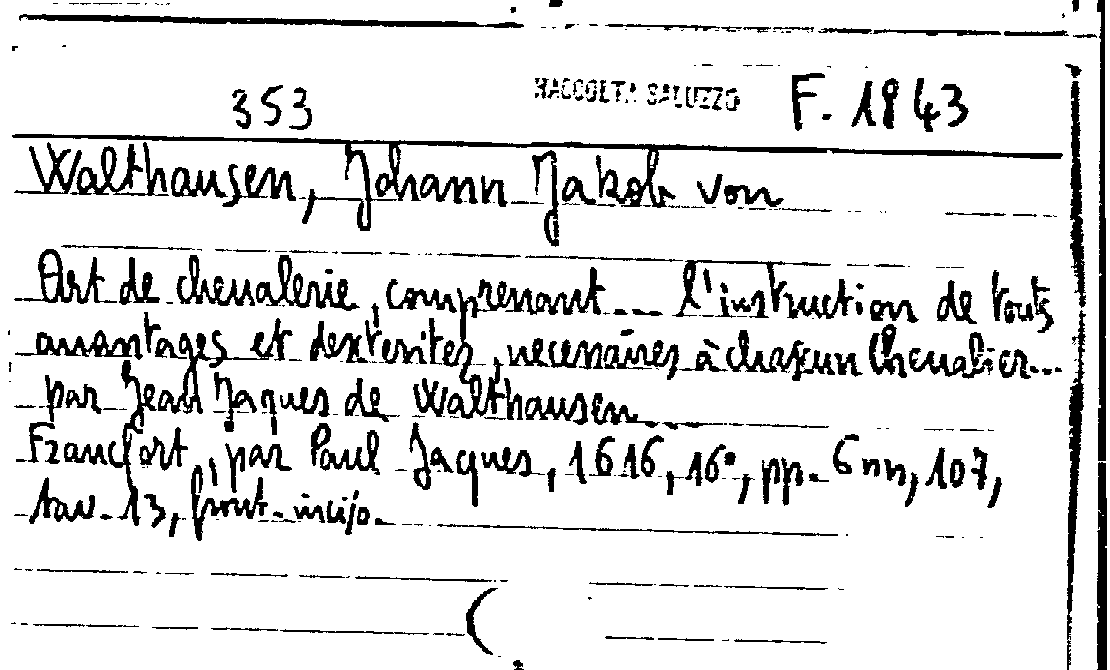 353 RACCOLTA SALUZZO F. 1843
Walthausen, Johann Jakob von
Art de cheualerie, comprenant... l'instruction de touts
auantages et dexteritez, necessaires à chascun Cheualier...
par Jean Jaques de Walthausen....
Francfort, par Paul Jaques, 1616, 16°, pp. 6 nn, 107,
tav. 13, front. incis.